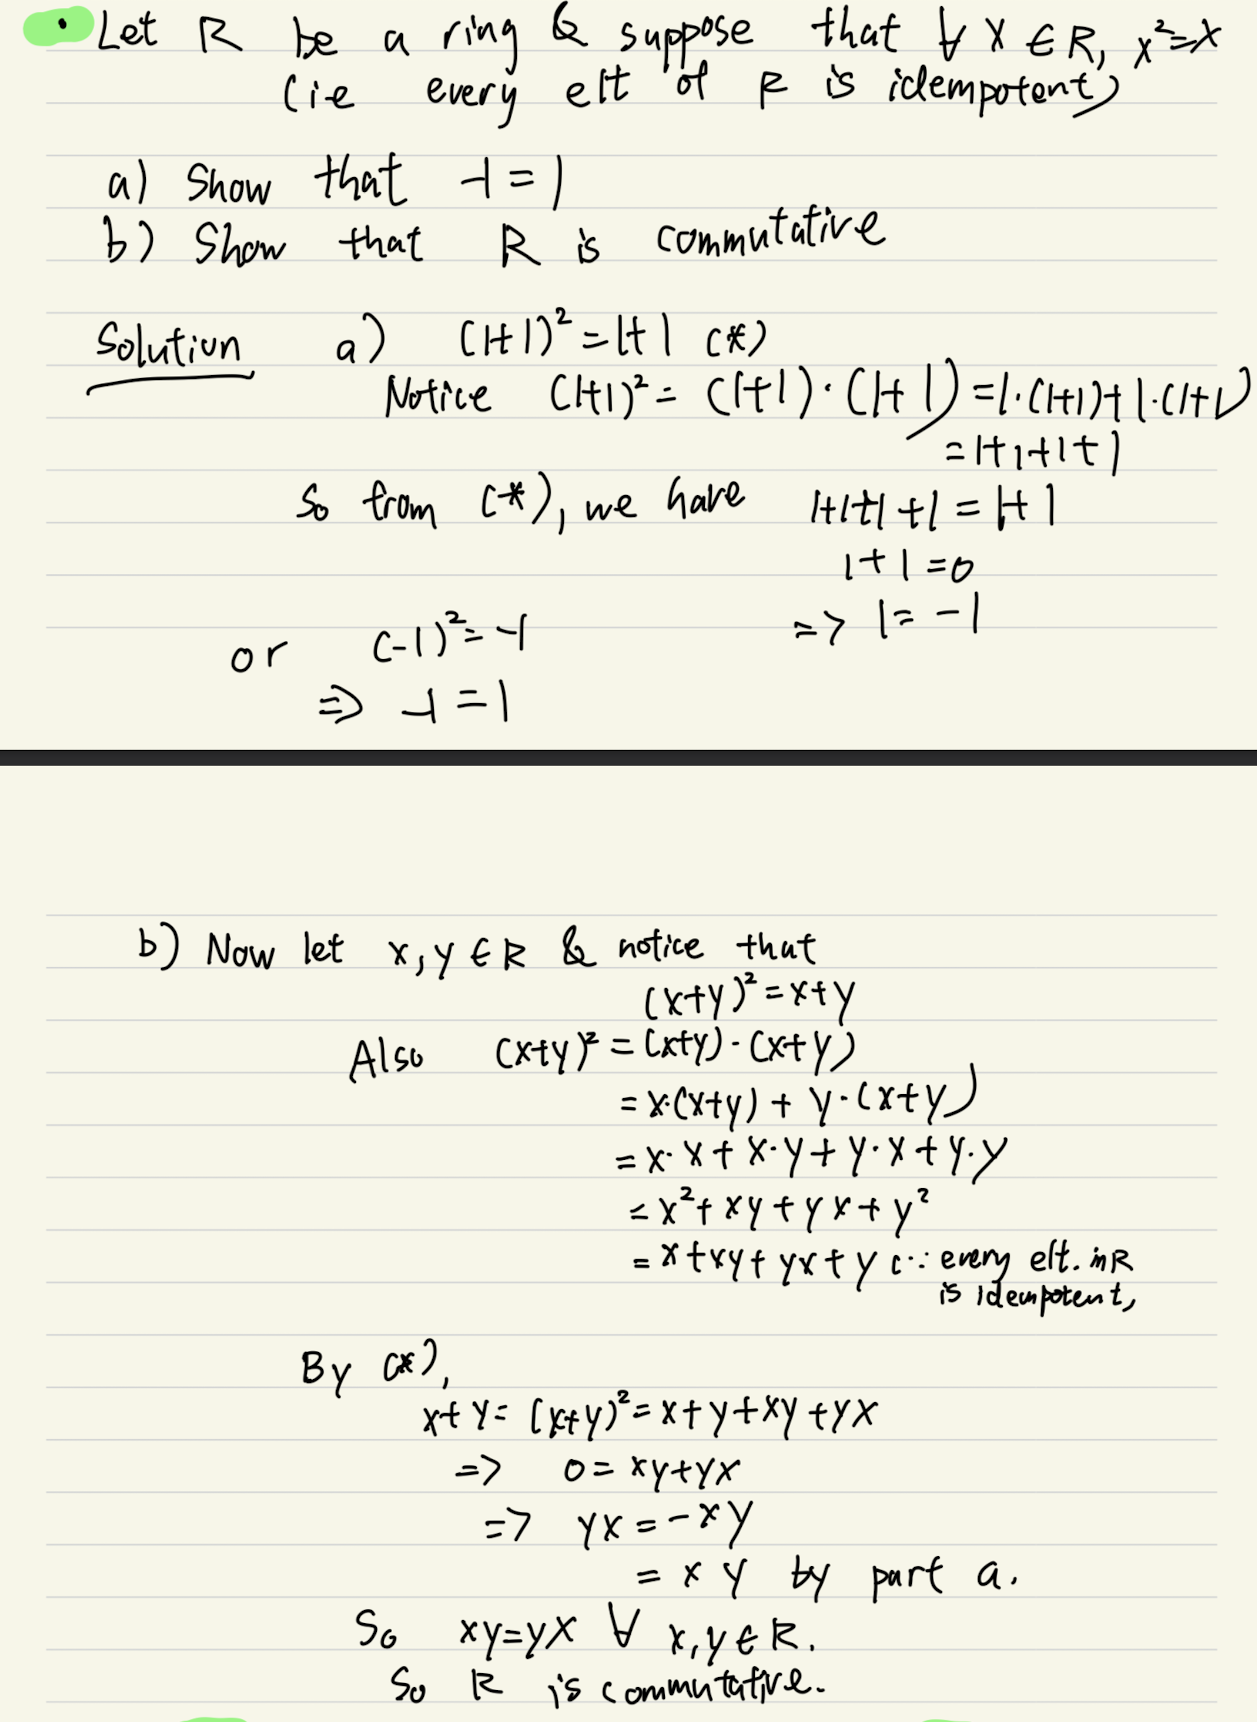 • Let R be a ring & suppose that ∀ x ∈ R, x²=x
(ie every elt of R is idempotent)
a) Show that -1=1
b) Show that R is commutative
Solution a) (1+1)²=1+1 (*)
Notice (1+1)²= (1+1)·(1+1)=1·(1+1)+1·(1+1)
=1+1+1+1
So from (*), we have 1+1+1+1=1+1
1+1=0
=> 1=-1
or (-1)²=-1
=> -1=1
b) Now let x,y∈R & notice that
(x+y)²=x+y
Also (x+y)²=(x+y)·(x+y)
=x·(x+y)+y·(x+y)
=x·x+x·y+y·x+y·y
=x²+xy+yx+y²
=x+xy+yx+y (∵ every elt. in R
is idempotent)
By (*),
x+y=(x+y)²=x+y+xy+yx
=> 0=xy+yx
=> yx=-xy
=xy by part a.
So xy=yx ∀ x,y∈R.
So R is commutative.